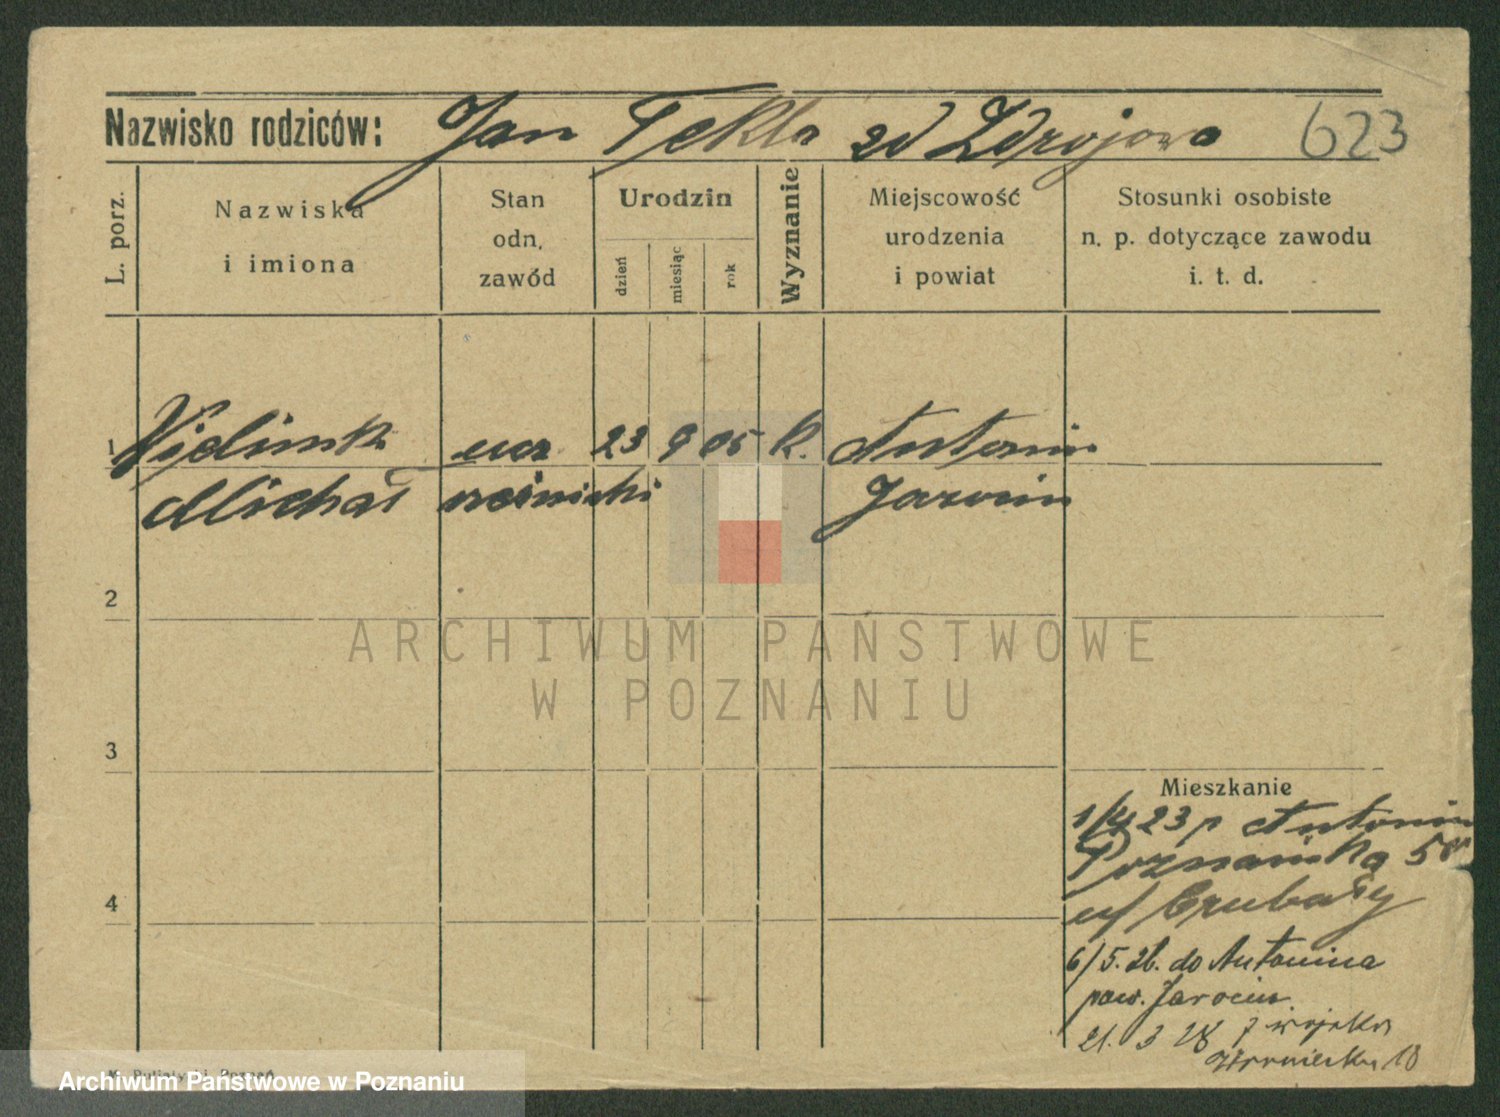 Nazwisko rodziców: Jan Tekla zd Zdrojowa 623
L. porz.
Nazwiska
i imiona
Stan
odn.
zawód
Urodzin
dzień
miesiąc
rok
Wyznanie
Miejscowość
urodzenia
i powiat
Stosunki osobiste
n. p. dotyczące zawodu
i. t. d.
1 ucz 23 9 05 k. Antonin
Michał rzeźnicki Jarocin
2
ARCHIWUM PAŃSTWOWE
W POZNANIU
3
Mieszkanie
1/4 23 p Antonin
Poznańska 58
4
u/ Czubały
6/5.26. do Antonina
pow. Jarocin.
21. 3 28 z wojska
18
Archiwum Państwowe w Poznaniu